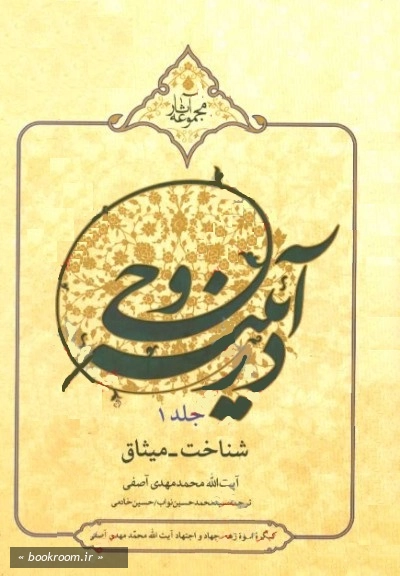 مجموعه آثار
در آئینه وحی
جلد ۱
شناخت - میثاق
آیت‌الله محمدمهدی آصفی
ترجمه: سیدمحمدحسین نواب/حسین خادمی
کنگرهٔ اسوهٔ زهد، جهاد و اجتهاد آیت الله محمّد مهدی آصفی
« bookroom.ir »